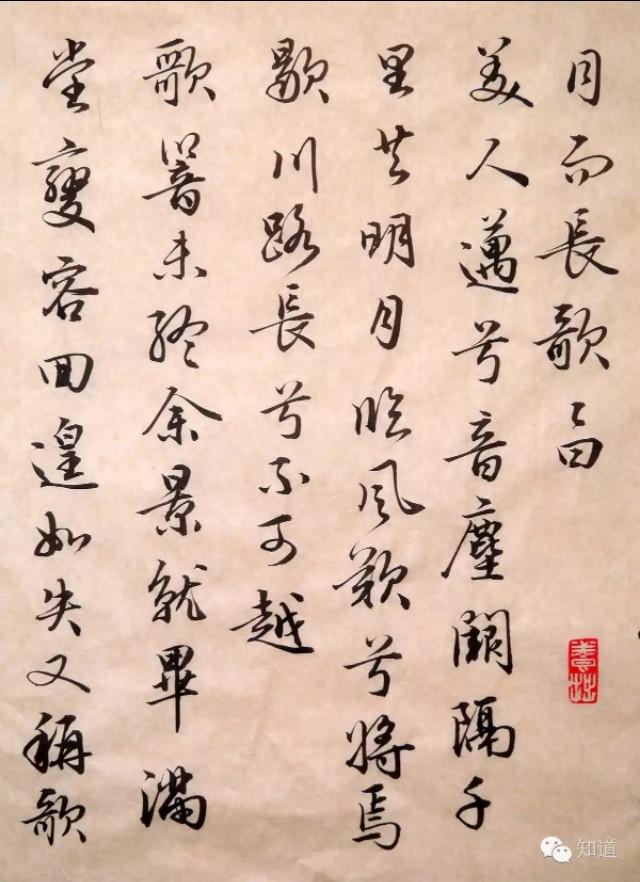 月而長歌〻曰
美人邁兮音塵闕隔千
里共明月臨風歎兮將焉
歇川路長兮不可越
歌響未終余景就畢滿
堂變容回遑如失又稱歌
養拙
知道